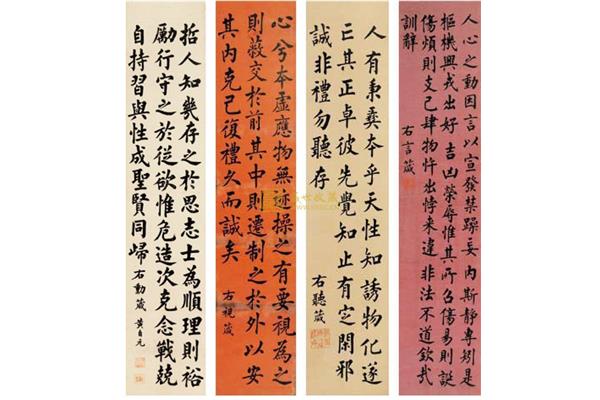 人心之動因言以宣發禁躁妄內斯靜專矧是
樞機興戎出好吉凶榮辱惟其所召傷易則誕
傷煩則支己肆物忤出悖來違非法不道欽哉
訓辭
右言箴
人有秉彝本乎天性知誘物化遂
亡其正卓彼先覺知止有定閑邪
誠非禮勿聽存
右聽箴
心兮本虛應物無迹操之有要視為之
則蔽交於前其中則遷制之於外以安
其內克己復禮久而誠矣
右視箴
哲人知幾存之於思志士為順理則裕
勵行守之於從欲惟危造次克念戰兢
自持習與性成聖賢同歸
右動箴 黃自元